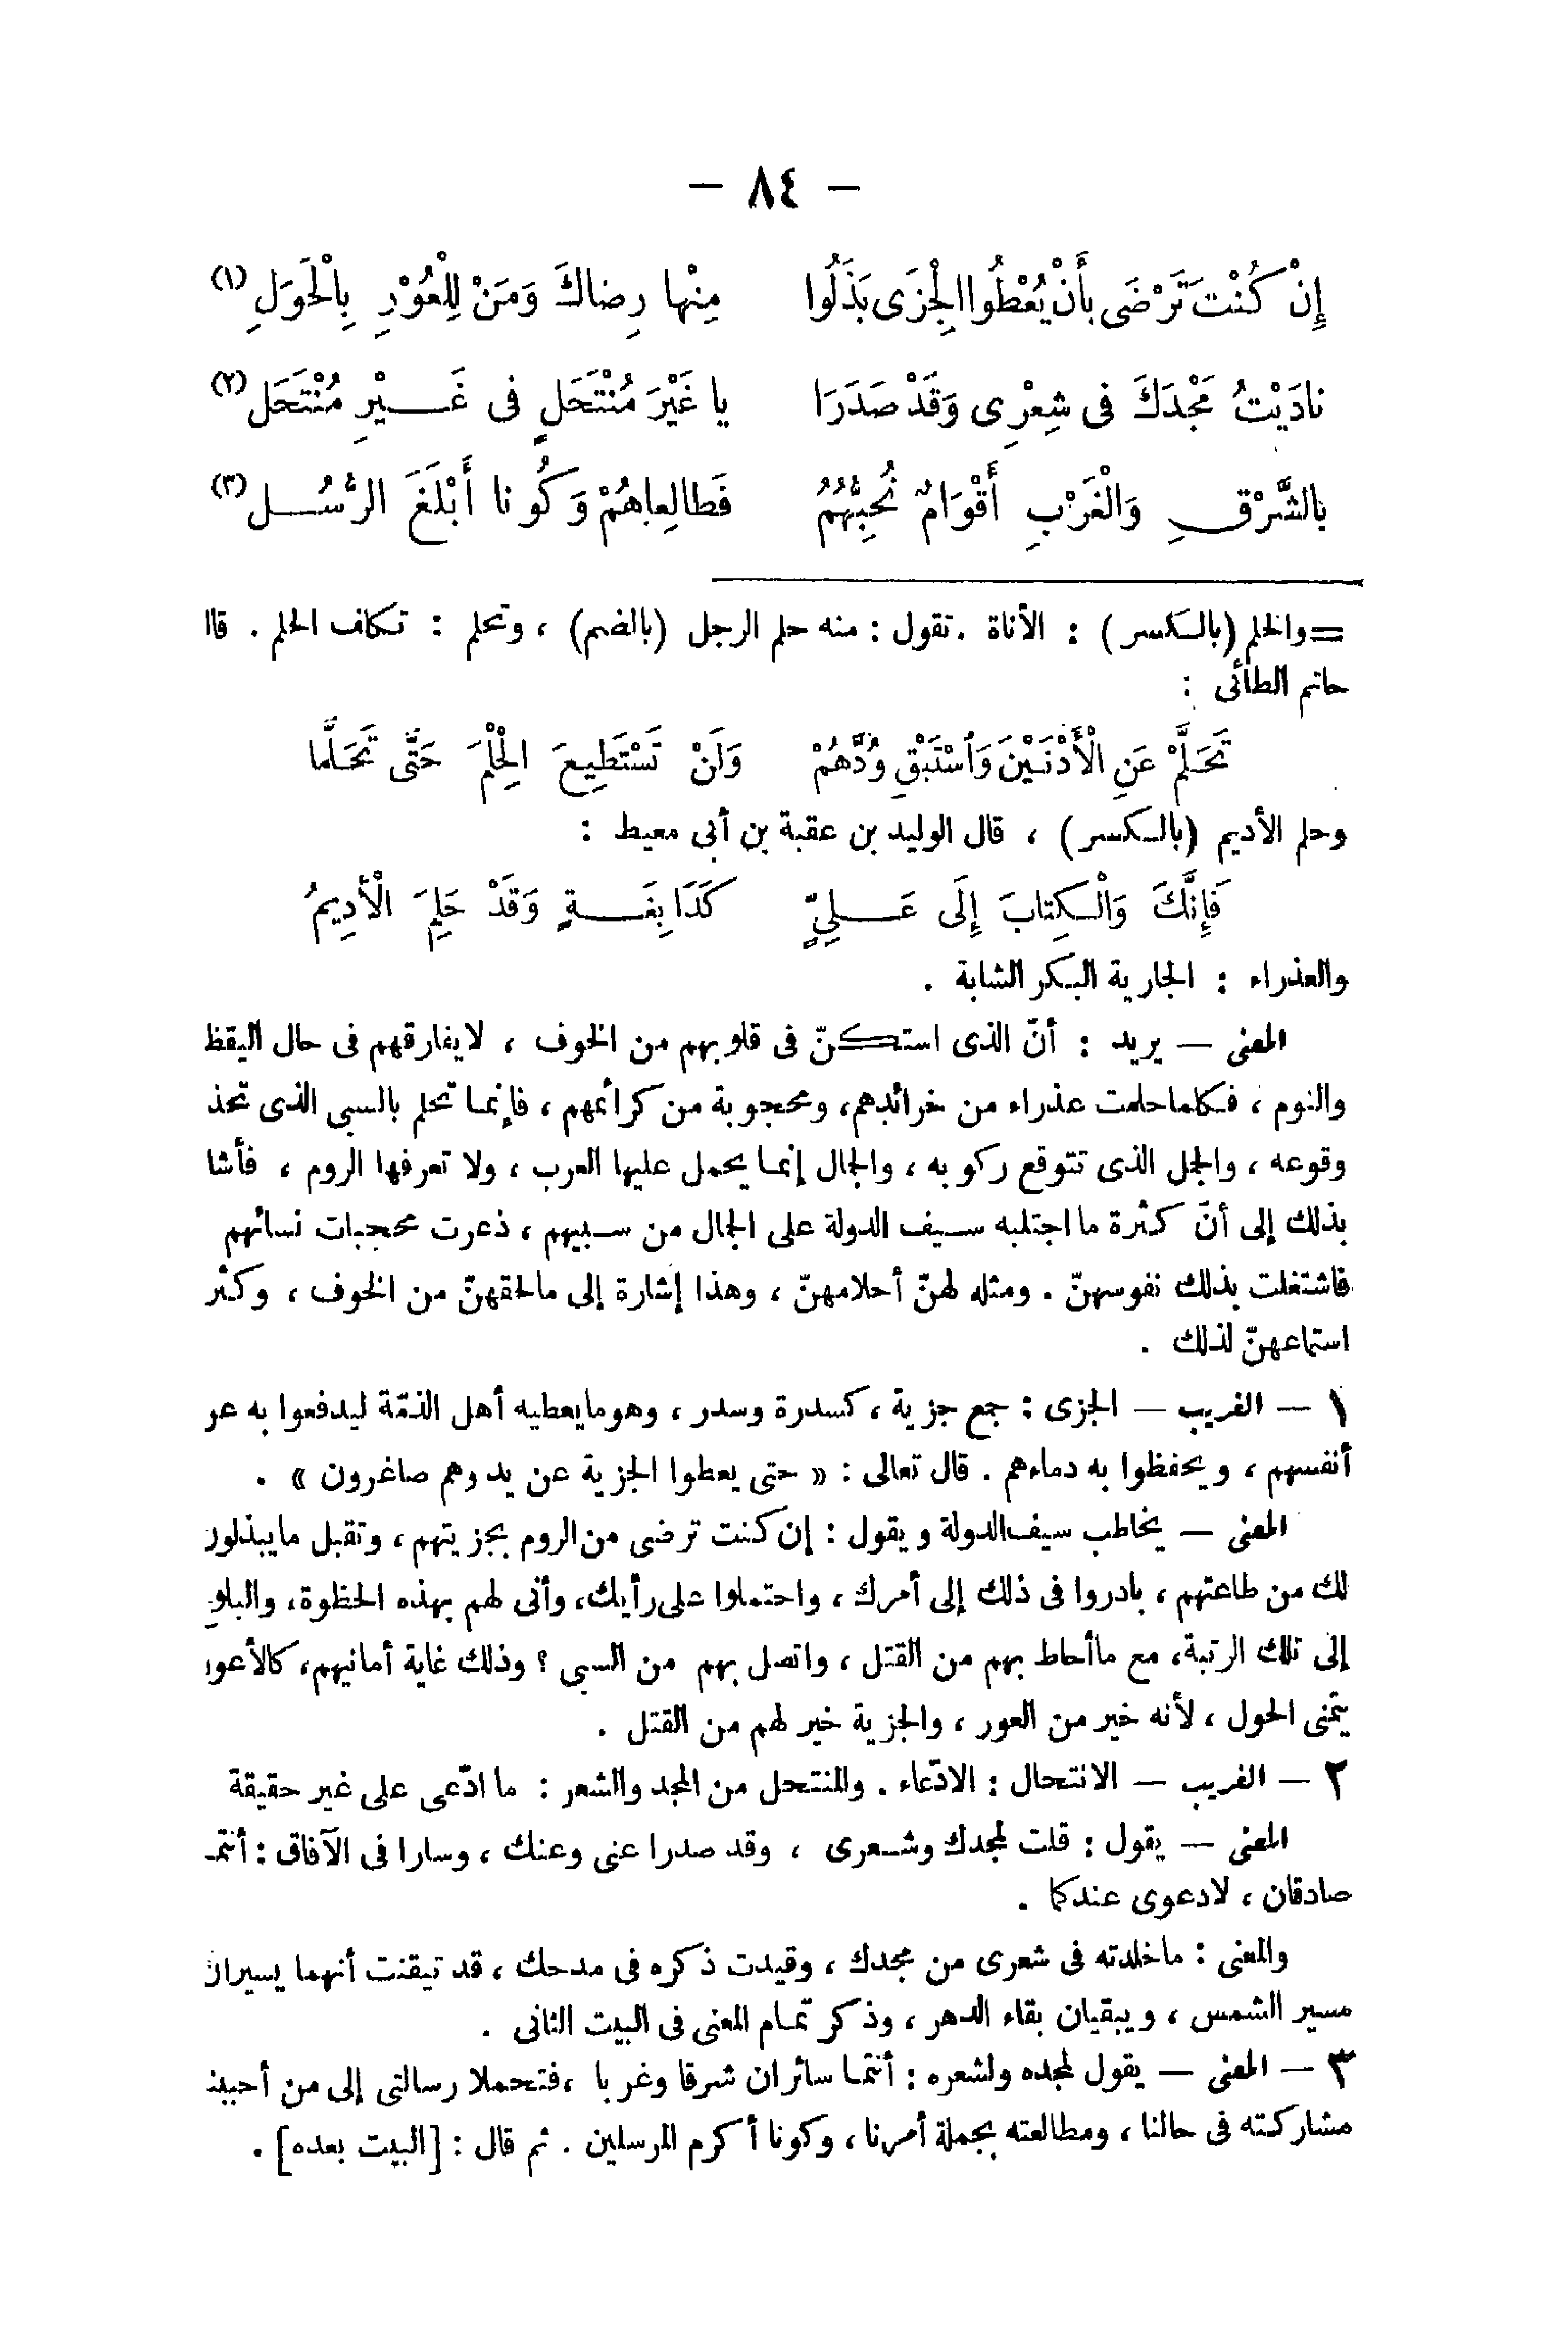 — ٨٤ —
إِنْ كُنْتَ تَرْضَى بأَنْ يُعْطُوا الْجِزَى بَذَلُوا مِنْها رِضاكَ وَمَنْ لِلْعُوْرِ بِالْحَوَلِ (١)
نادَيْتُ مَجْدَكَ فى شِعْرِى وَقَدْ صَدَرَا يا غَيْرَ مُنْتَحَلٍ فى غَيْرِ مُنْتَحَلِ (٢)
بالشَّرْقِ وَالْغَرْبِ أَقْوَامٌ نُحِبُّهُمُ فَطالِعاهُمْ وَكُونا أَبْلَغَ الرُّسُلِ (٣)
= والحلم (بالكسر) : الأناة . تقول : منه حلم الرجل (بالضم) ، وتحلم : تكلف الحلم . قا
حاتم الطائى :
تَحَلَّمْ عَنِ الْأَدْنَيْنَ وَاسْتَبْقِ وُدَّهُمْ وَلَنْ تَسْتَطِيعَ الْحِلْمَ حَتَّى تَحَلَّما
وحلم الأديم (بالكسر) ، قال الوليد بن عقبة بن أبى معيط :
فَإِنَّكَ وَالْكِتابَ إِلَى عَلِيٍّ كَدَابِغَةٍ وَقَدْ حَلِمَ الْأَدِيمُ
والعذراء : الجارية البكر الشابة .
المعنى — يريد : أنّ الذى استكنّ فى قلوبهم من الخوف ، لا يفارقهم فى حال اليقظ
والنوم ، فكلما حلمت عذراء من خرائدهم ، ومحجوبة من كرائمهم ، فإنما تحلم بالسبى الذى تحذ
وقوعه ، والجمل الذى تتوقع ركوبه ، والجمال إنما يحمل عليها العرب ، ولا تعرفها الروم ، فأشا
بذلك إلى أنّ كثرة ما اجتلبه سيف الدولة على الجمال من سبيهم ، ذعرت محجبات نسائهم
فاشتغلت بذلك نفوسهنّ . ومثله لهنّ أحلامهنّ ، وهذا إشارة إلى مالحقهنّ من الخوف ، وكثر
استماعهنّ لذلك .
١ — الغريب — الجزى : جمع جزية ، كسدرة وسدر ، وهو ما يعطيه أهل الذمّة ليدفعوا به عر
أنفسهم ، ويحفظوا به دماءهم . قال تعالى : « حتى يعطوا الجزية عن يد وهم صاغرون » .
المعنى — يخاطب سيف الدولة ويقول : إن كنت ترضى من الروم بجزيتهم ، وتقبل ما يبذلون
لك من طاعتهم ، بادروا فى ذلك إلى أمرك ، واحتملوا على رأيك ، وأنى لهم بهذه الحظوة ، والبلو
إلى تلك الرتبة ، مع ما أحاط بهم من القتل ، واتصل بهم من السبى ؟ وذلك غاية أمانيهم ، كالأعور
يتمنى الحول ، لأنه خير من العور ، والجزية خير لهم من القتل .
٢ — الغريب — الانتحال : الادّعاء . والمنتحل من المجد والشعر : ما ادّعى على غير حقيقة
المعنى — يقول : قلت لمجدك وشعرى ، وقد صدرا عنى وعنك ، وسارا فى الآفاق : أنتمـ
صادقان ، لا دعوى عندكما .
والمعنى : ما خلدته فى شعرى من مجدك ، وقيدت ذكره فى مدحك ، قد تيقنت أنهما يسيران
مسير الشمس ، ويبقيان بقاء الدهر ، وذكر تمام المعنى فى البيت الثانى .
٣ — المعنى — يقول لمجده ولشعره : أنتما سائران شرقا وغربا ، فتحملا رسالتى إلى من أحببنـ
مشاركته فى حالنا ، ومطالعته بجملة أمرنا ، وكونا أكرم المرسلين . ثم قال : [البيت بعده] .